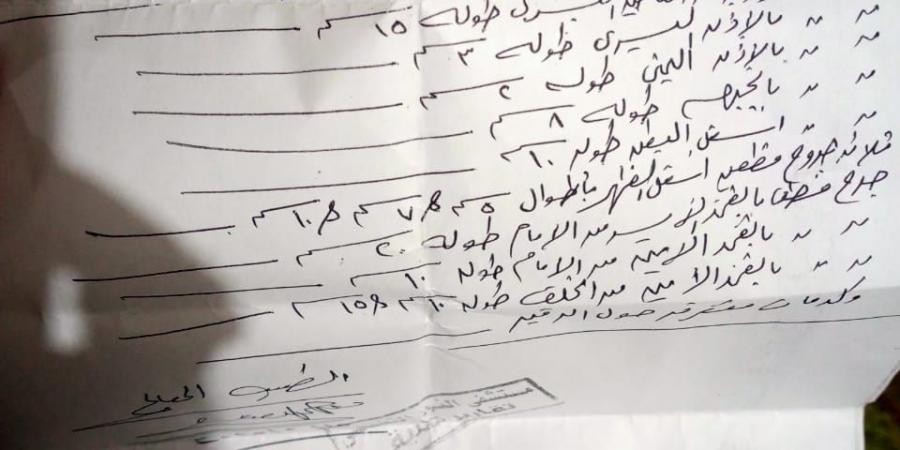 اليسرى طوله ١٥ سم
〃 〃 بالاذن اليسرى طوله ٣ سم
〃 〃 بالاذن اليمنى طوله ٢ سم
〃 〃 بالجبهه طوله ٨ سم
〃 〃 اسفل البطن طوله ١٠ سم
ثلاثة جروح قطعيه اسفل الظهر باطوال ٥ سم و ٧ سم و ١٠ سم
جرح قطعي بالفخذ الايسر من الامام طوله ٢٠ سم
〃 〃 بالفخذ الايمن من الامام طوله ١٠ سم
〃 〃 بالفخذ الأيمن من الخلف طوله ١٠ سم و ١٥ سم
وكدمات متفرقه حول الرقبه
الطبيب المعالج
مستشفى